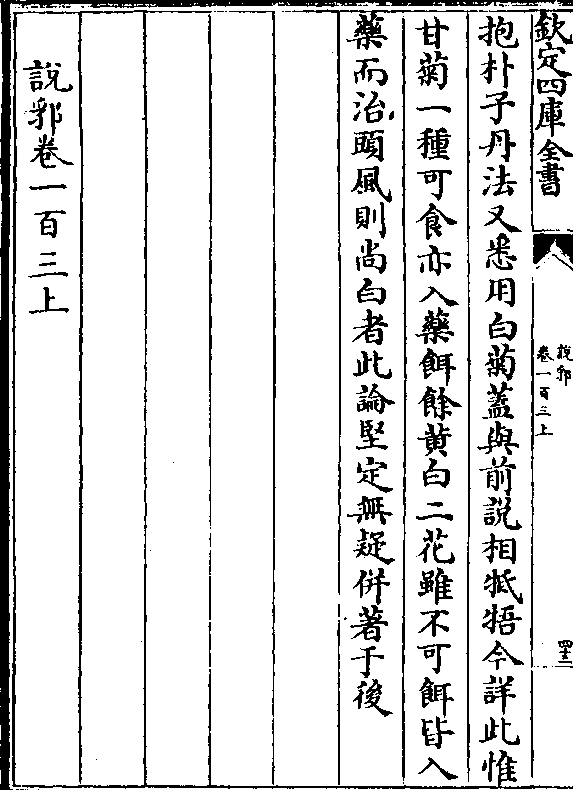 欽定四庫全書
說郛
卷一百三上
四十三
抱朴子丹法又悉用白菊蓋與前説相牴牾今詳此惟
甘菊一種可食亦入藥餌餘黄白二花雖不可餌皆入
藥而治頭風則尚白者此論堅定無疑併著于後
說郛卷一百三上